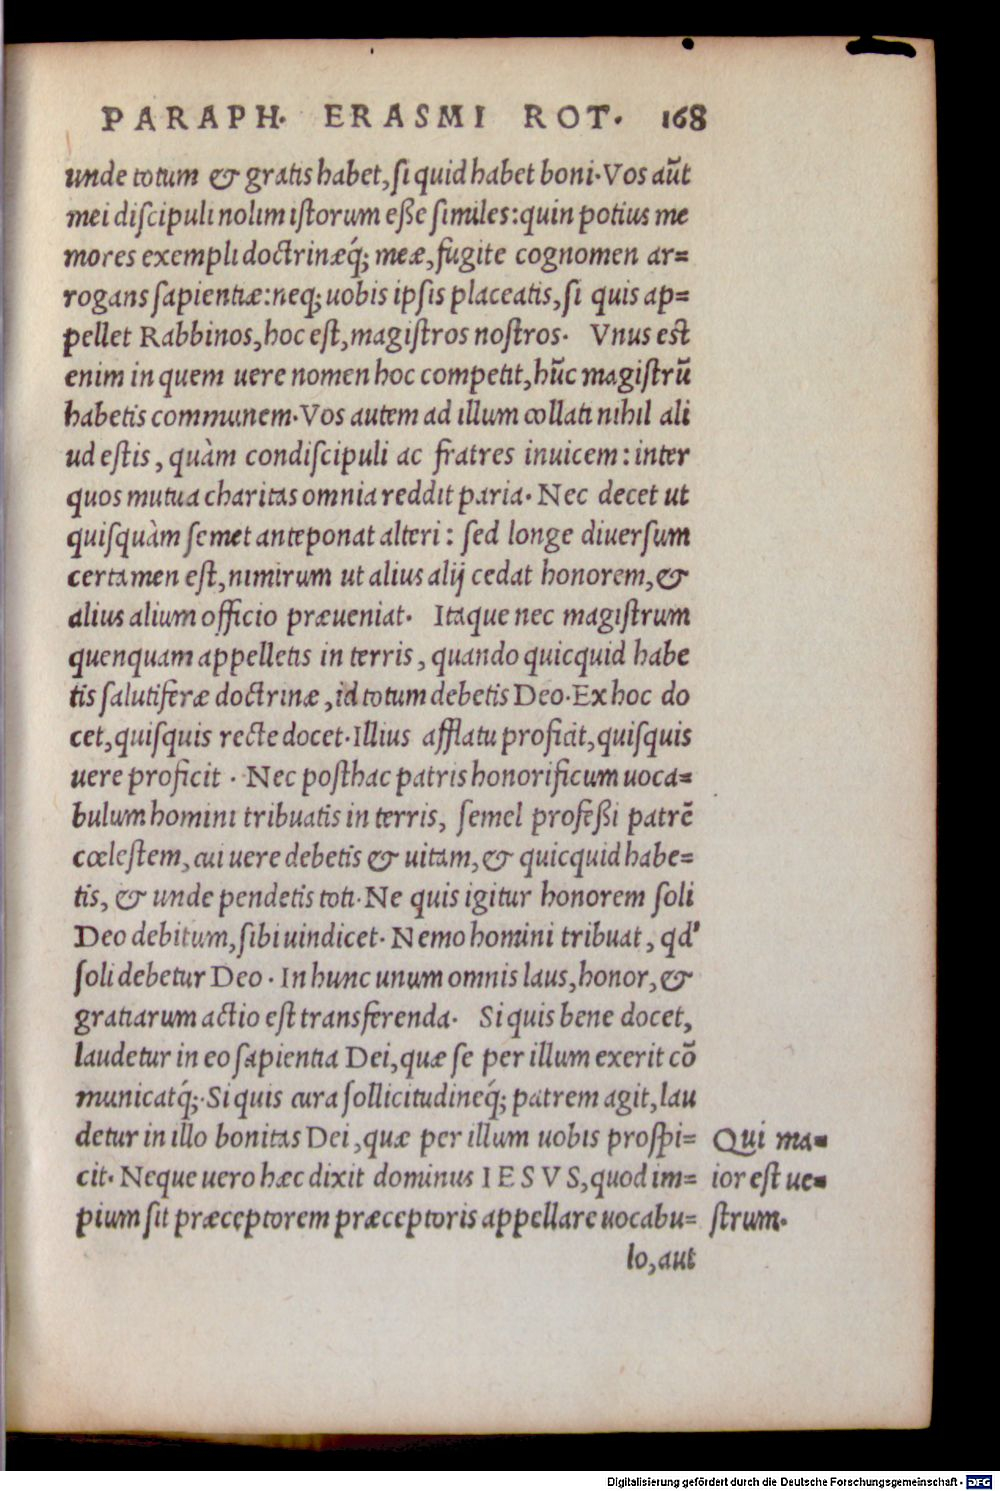 PARAPH. ERASMI ROT. 168
unde totum & gratis habet, ſi quid habet boni. Vos aūt
mei diſcipuli nolim iſtorum eße ſimiles: quin potius me
mores exempli doctrinæq́; meæ, fugite cognomen ar=
rogans ſapientiæ: neq; uobis ipſis placeatis, ſi quis ap=
pellet Rabbinos, hoc eſt, magiſtros noſtros. Vnus est
enim in quem uere nomen hoc competit, hūc magiſtrū
habetis communem. Vos autem ad illum collati nihil ali
ud eſtis, quàm condiſcipuli ac fratres inuicem: inter
quos mutua charitas omnia reddit paria. Nec decet ut
quiſquàm ſemet anteponat alteri: ſed longe diuerſum
certamen eſt, nimirum ut alius alij cedat honorem, &
alius alium officio præueniat. Itaque nec magiſtrum
quenquam appelletis in terris, quando quicquid habe
tis ſalutiferæ doctrinæ, id totum debetis Deo. Ex hoc do
cet, quiſquis recte docet. Illius afflatu proficit, quiſquis
uere proficit. Nec poſthac patris honorificum uoca=
bulum homini tribuatis in terris, ſemel profeßi patrē
cœleſtem, cui uere debetis & uitam, & quicquid habe=
tis, & unde pendetis toti. Ne quis igitur honorem ſoli
Deo debitum, ſibi uindicet. Nemo homini tribuat, qd'
ſoli debetur Deo. In hunc unum omnis laus, honor, &
gratiarum actio eſt transferenda. Si quis bene docet,
laudetur in eo ſapientia Dei, quæ ſe per illum exerit cō
municatq́;. Si quis cura ſollicitudineq́; patrem agit, lau
detur in illo bonitas Dei, quæ per illum uobis proſpi=
cit. Neque uero hæc dixit dominus IESVS, quod im=
pium ſit præceptorem præceptoris appellare uocabu=
lo, aut
Qui ma=
ior eſt ue=
ſtrum.
Digitalisierung gefördert durch die Deutsche Forschungsgemeinschaft - DFG